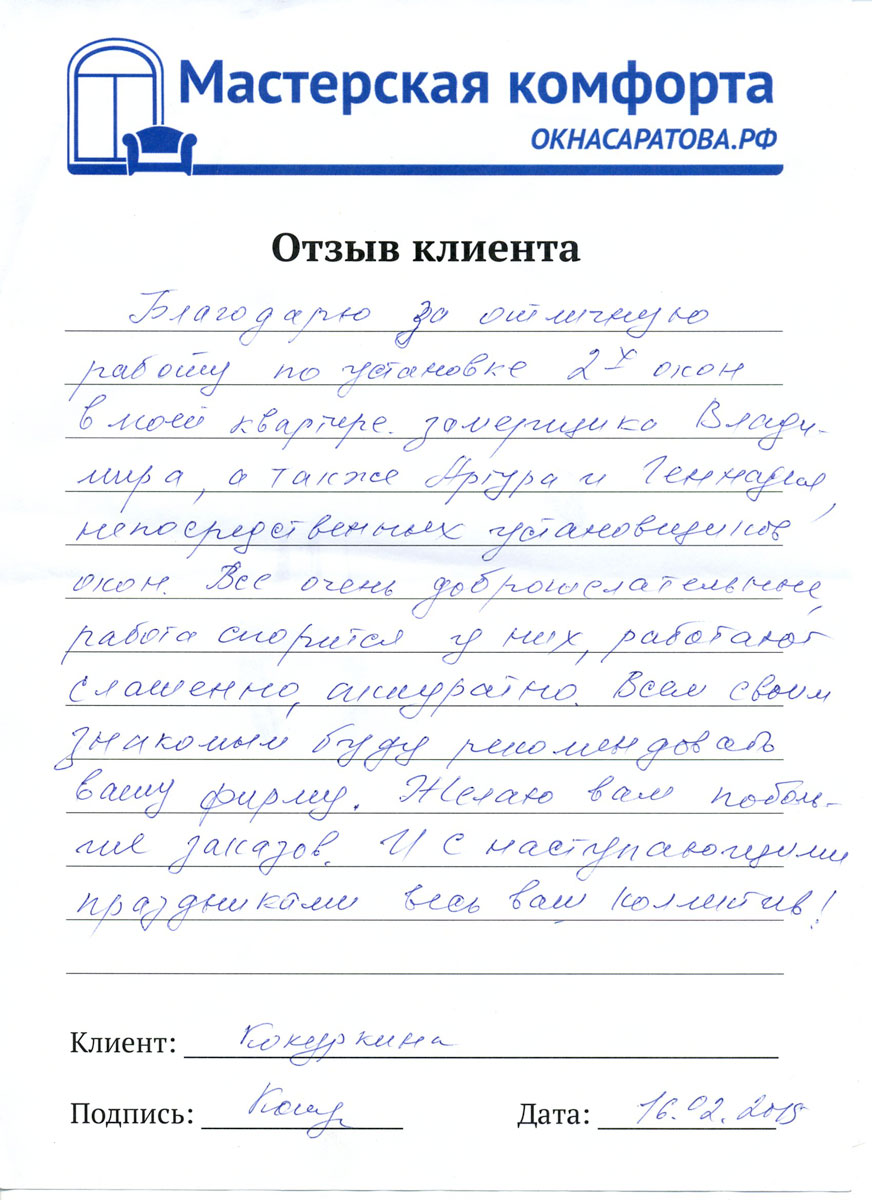 Мастерская комфорта
ОКНАСАРАТОВА.РФ
Отзыв клиента
Благодарю за отличную
работу по установке 2х окон
в моей квартире. замерщика Влади-
мира, а также Артура и Геннадия,
непосредственных установщиков
окон. Все очень доброжелательные,
работа спорится у них, работают
слаженно, аккуратно. Всем своим
знакомым буду рекомендовать
вашу фирму. Желаю вам поболь-
ше заказов. И с наступающими
праздниками весь ваш коллектив!
Клиент: Кокуркина
Подпись:
Дата: 16.02.2015